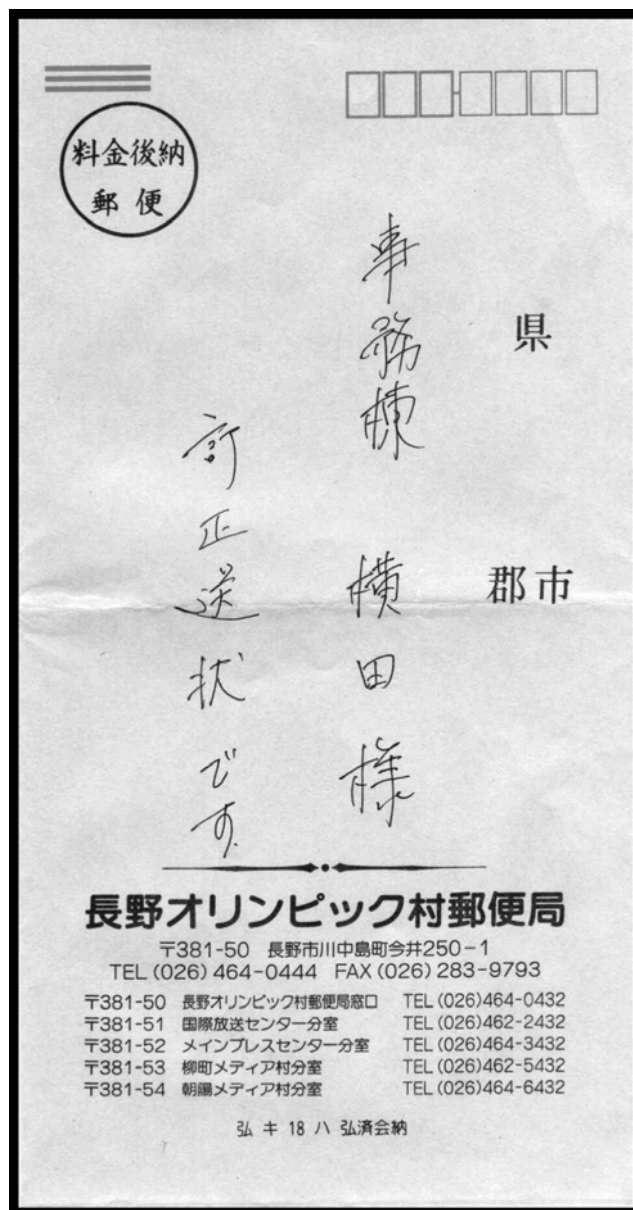 料金後納
郵便
県
郡市
事務棟 横田様
訂正送状です.
長野オリンピック村郵便局
〒381-50 長野市川中島町今井250-1
TEL (026) 464-0444 FAX (026) 283-9793
〒381-50 長野オリンピック村郵便局窓口 TEL (026)464-0432
〒381-51 国際放送センター分室 TEL (026)462-2432
〒381-52 メインプレスセンター分室 TEL (026)464-3432
〒381-53 柳町メディア村分室 TEL (026)462-5432
〒381-54 朝陽メディア村分室 TEL (026)464-6432
弘 キ 18 ハ 弘済会納